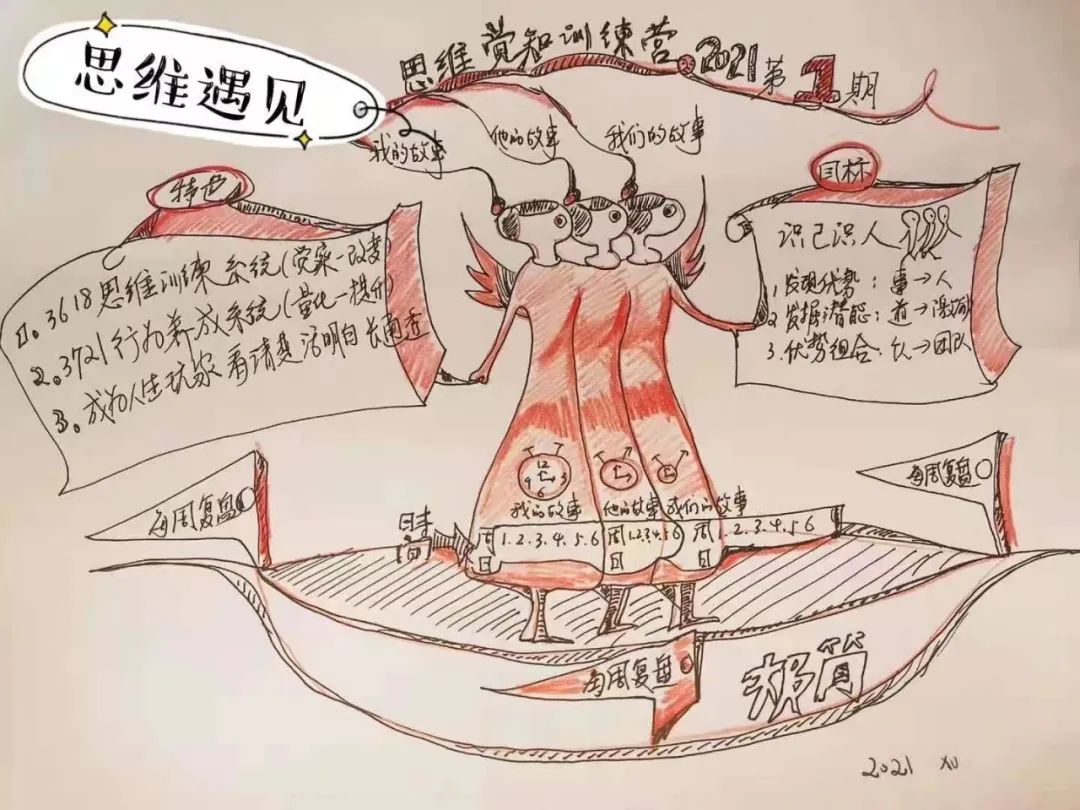 思维遇见
思维觉知训练营 2021第1期
我的故事
他的故事
我们的故事
特色
1. 3618思维训练系统(觉察-改变)
2. 3721行为养成系统(量化-提升)
3. 成为人生玩家 看清楚 活明白 长通透
目标
识己识人
1. 发现优势: 事→人
2. 发掘潜能: 道→
3. 优势组合: 从→团队
每周复盘
每周复盘
12
9 3
6
我的故事 他的故事 我们的故事
周日 1.2.3.4.5.6
周日 1.2.3.4.5 6
周日 1.2.3.4.5 6
每周复盘
2021 XU